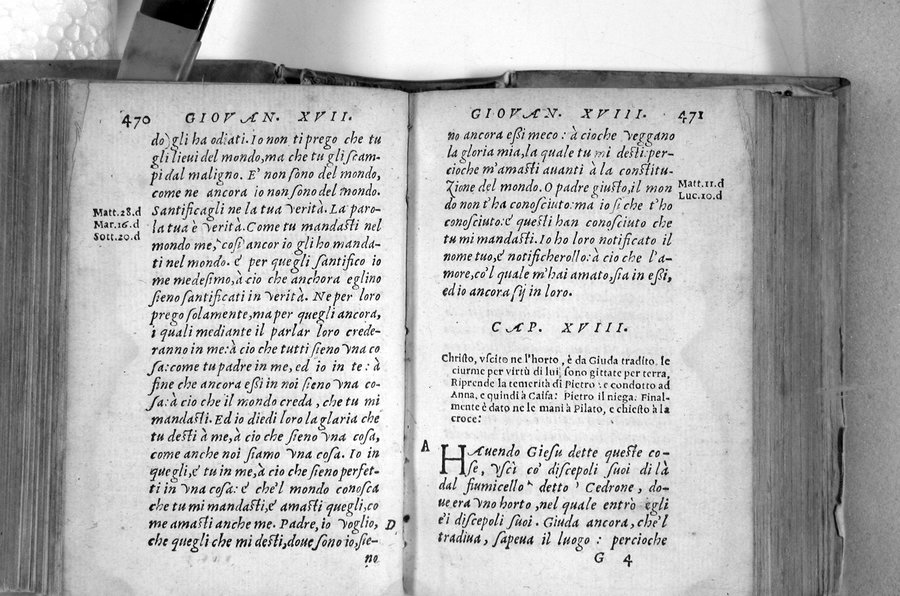 470 GIOVAN. XVII.
do gli ha odiati. Io non ti prego che tu
gli lieui del mondo, ma che tu gli ſcam-
pi dal maligno. E' non ſono del mondo,
come ne ancora io non ſono del mondo.
Matt.28.d
Mar.16.d
Sott.20.d
Santificagli ne la tua verità. La paro-
la tua è verità. Come tu mandaſti nel
mondo me, coſi ancor io gli ho manda-
ti nel mondo. é per quegli ſantifico io
me medeſimo, à cio che anchora eglino
ſieno ſantificati in verità. Ne per loro
prego ſolamente, ma per quegli ancora,
i quali mediante il parlar loro crede-
ranno in me: à cio che tutti ſieno vna co
ſa: come tu padre in me, ed io in te: à
fine che ancora eßi in noi ſieno vna co-
ſa: à cio che il mondo creda, che tu mi
mandaſti. Ed io diedi loro la glaria che
tu deſti à me, à cio che ſieno vna coſa,
come anche noi ſiamo vna coſa. Io in
quegli, é tu in me, à cio che ſieno perfet-
ti in vna coſa: é che'l mondo conoſca
che tu mi mandaſti, é amaſti quegli, co
me amaſti anche me. Padre, io voglio, D
che quegli che mi deſti, doue ſono io, ſie-
no
GIOVAN. XVIII. 471
no ancora eßi meco: à cioche veggano
la gloria mia, la quale tu mi deſti: per-
cioche m'amaſti auanti à la conſtitu-
zione del mondo. O padre giuſto, il mon
do non t'ha conoſciuto: ma io ſi che t'ho
conoſciuto: é queſti han conoſciuto che
tu mi mandaſti. Io ho loro notificato il
nome tuo, é notificherollo: à cio che l'a-
more, co'l quale m'hai amato, ſia in eßi,
ed io ancora ſij in loro.
Matt.11.d
Luc.10.d
CAP. XVIII.
Chriſto, vſcito ne l'horto, è da Giuda tradito. le
ciurme per virtù di lui ſono gittate per terra,
Riprende la temerità di Pietro: e condotto ad
Anna, e quindi à Caifa: Pietro il niega: Final-
mente è dato ne le mani à Pilato, e chieſto à la
croce:
A
HAuendo Gieſu dette queſte co-
ſe, vſcì co' diſcepoli ſuoi di là
dal fiumicello detto Cedrone, do-
ue era vno horto, nel quale entrò egli
é i diſcepoli ſuoi. Giuda ancora, che'l
tradiua, ſapeua il luogo: percioche
G 4